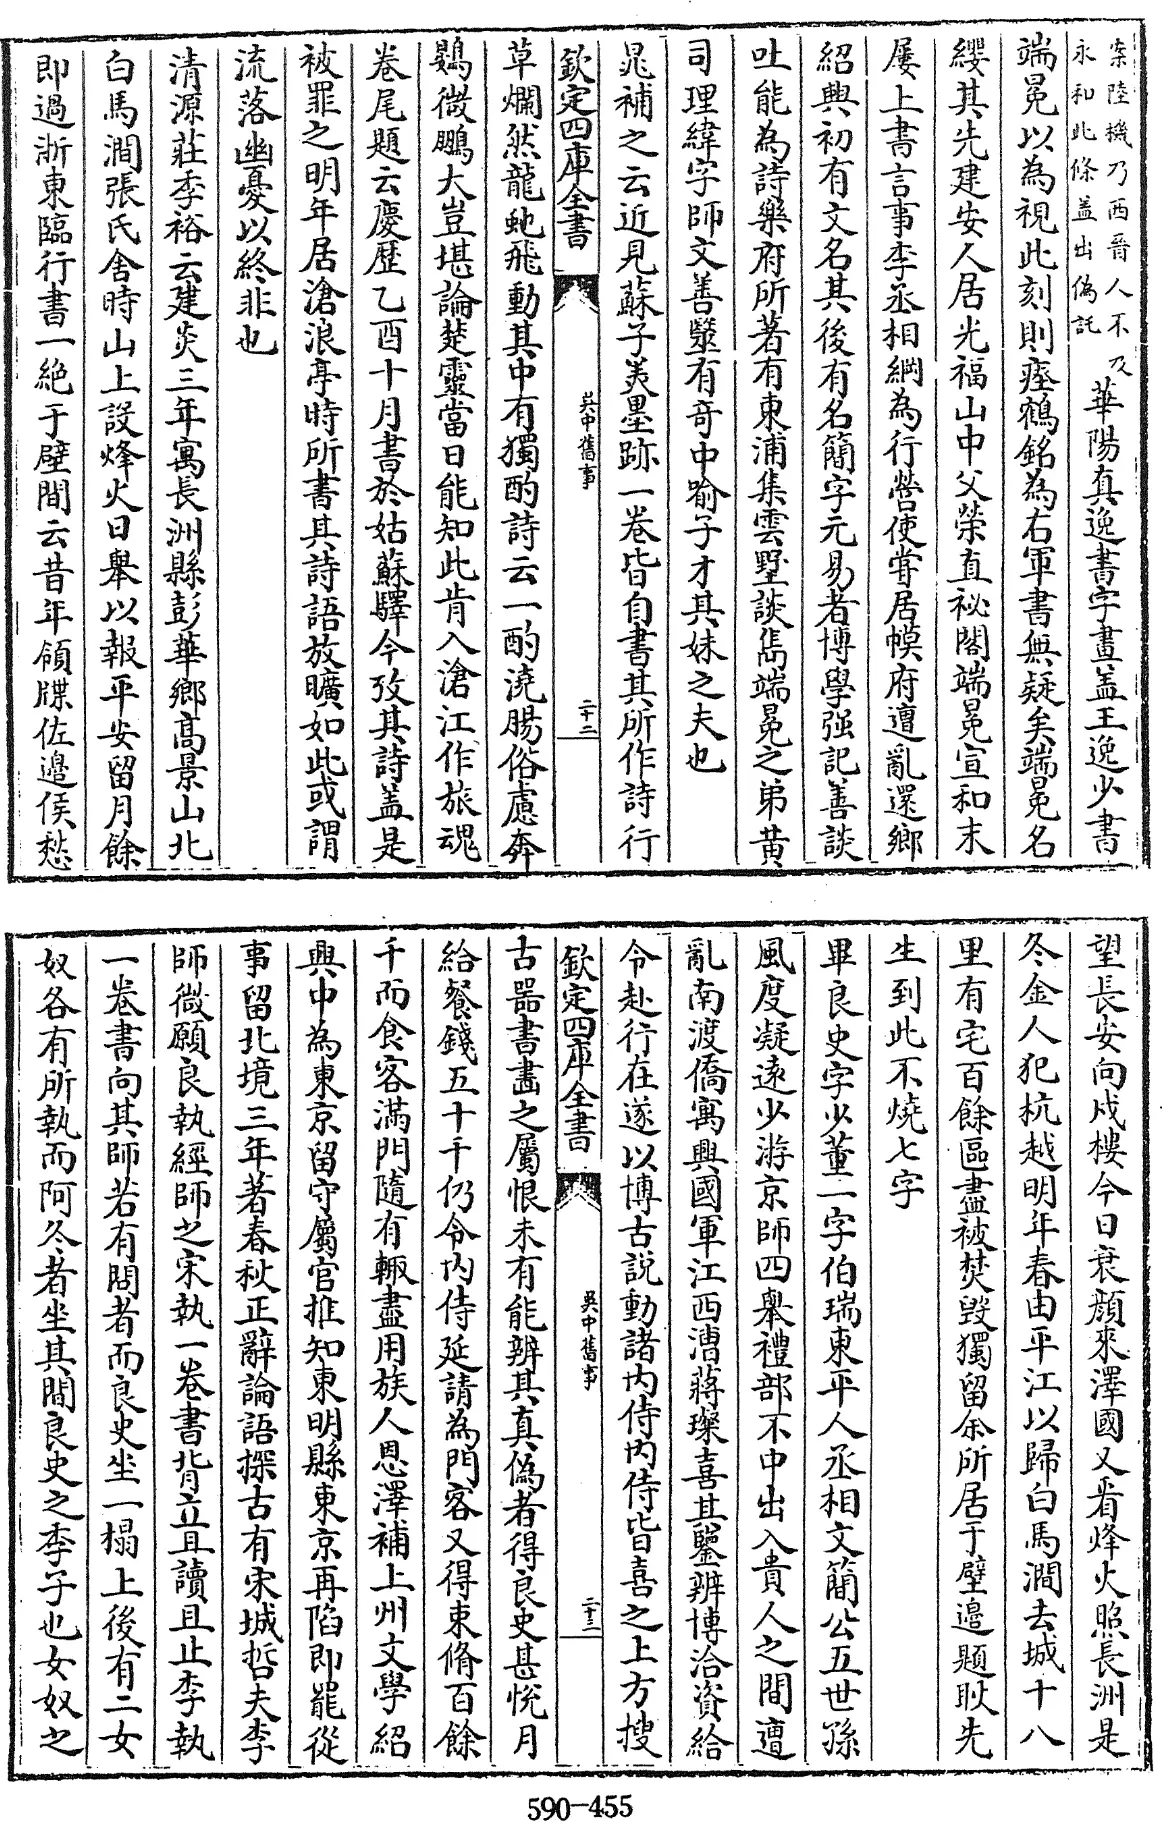 案陸機乃西晉人不及
永和此條盖出偽託
華陽真逸書字畫盖王逸少書
端冕以為視此刻則瘞鶴銘為右軍書無疑矣端冕名
纓其先建安人居光福山中父榮直祕閣端冕宣和末
屢上書言事李丞相綱為行營使嘗居幙府遭亂還鄉
紹興初有文名其後有名簡字元易者博學强記善談
吐能為詩樂府所著有東浦集雲墅談雋端冕之弟黄
司理緯字師文善毉有奇中喻子才其妹之夫也
晁補之云近見蘇子美墨跡一卷皆自書其所作詩行
欽定四庫全書
吳中舊事
二十二
草爛然龍虵飛動其中有獨酌詩云一酌澆腸俗慮奔
鷃微鵬大豈堪論楚靈當日能知此肯入滄江作旅魂
卷尾題云慶歷乙酉十月書於姑蘇驛今攷其詩盖是
被罪之明年居滄浪亭時所書其詩語放曠如此或謂
流落幽憂以終非也
清源莊季裕云建炎三年寓長洲縣彭華鄉高景山北
白馬澗張氏舍時山上設烽火日舉以報平安留月餘
即過浙東臨行書一絶于壁間云昔年領牒佐邊侯愁
望長安向戍樓今日衰顔來澤國又看烽火照長洲是
冬金人犯杭越明年春由平江以歸白馬澗去城十八
里有宅百餘區盡被焚毁獨留余所居于壁邉題耿先
生到此不燒七字
畢良史字少董一字伯瑞東平人丞相文簡公五世孫
風度凝遠少游京師四舉禮部不中出入貴人之間遭
亂南渡僑寓興國軍江西漕蔣璨喜其鑒辨博洽資給
令赴行在遂以博古説動諸内侍内侍皆喜之上方搜
欽定四庫全書
吳中舊事
二十三
古器書畵之屬恨未有能辨其真偽者得良史甚悅月
給餐錢五十千仍令内侍延請為門客又得束脩百餘
千而食客滿門隨有輙盡用族人恩澤補上州文學紹
興中為東京留守屬官推知東明縣東京再陷即罷從
事留北境三年著春秋正辭論語探古有宋城哲夫李
師微願良執經師之宋執一卷書背立且讀且止李執
一卷書向其師若有問者而良史坐一榻上後有二女
奴各有所執而阿冬者坐其間良史之季子也女奴之
590-455